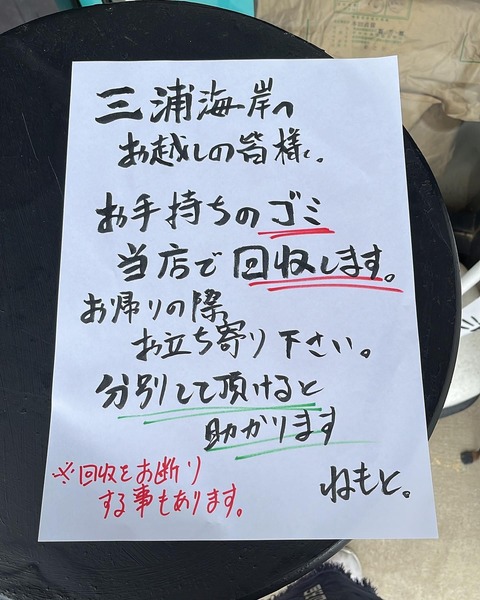 三浦海岸へ
お越しの皆様へ。
お手持ちのゴミ
当店で回収します。
お帰りの際
お立ち寄り下さい。
分別して頂けると
助かります
※回収をお断り
する事もあります。
ねもと。